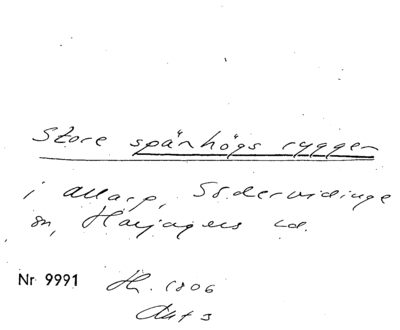 Store spånhögs ryggen
i Allarp, Södervidinge
sn, Harjagers hd.
Nr 9991 Hh. 1806
Akt 3